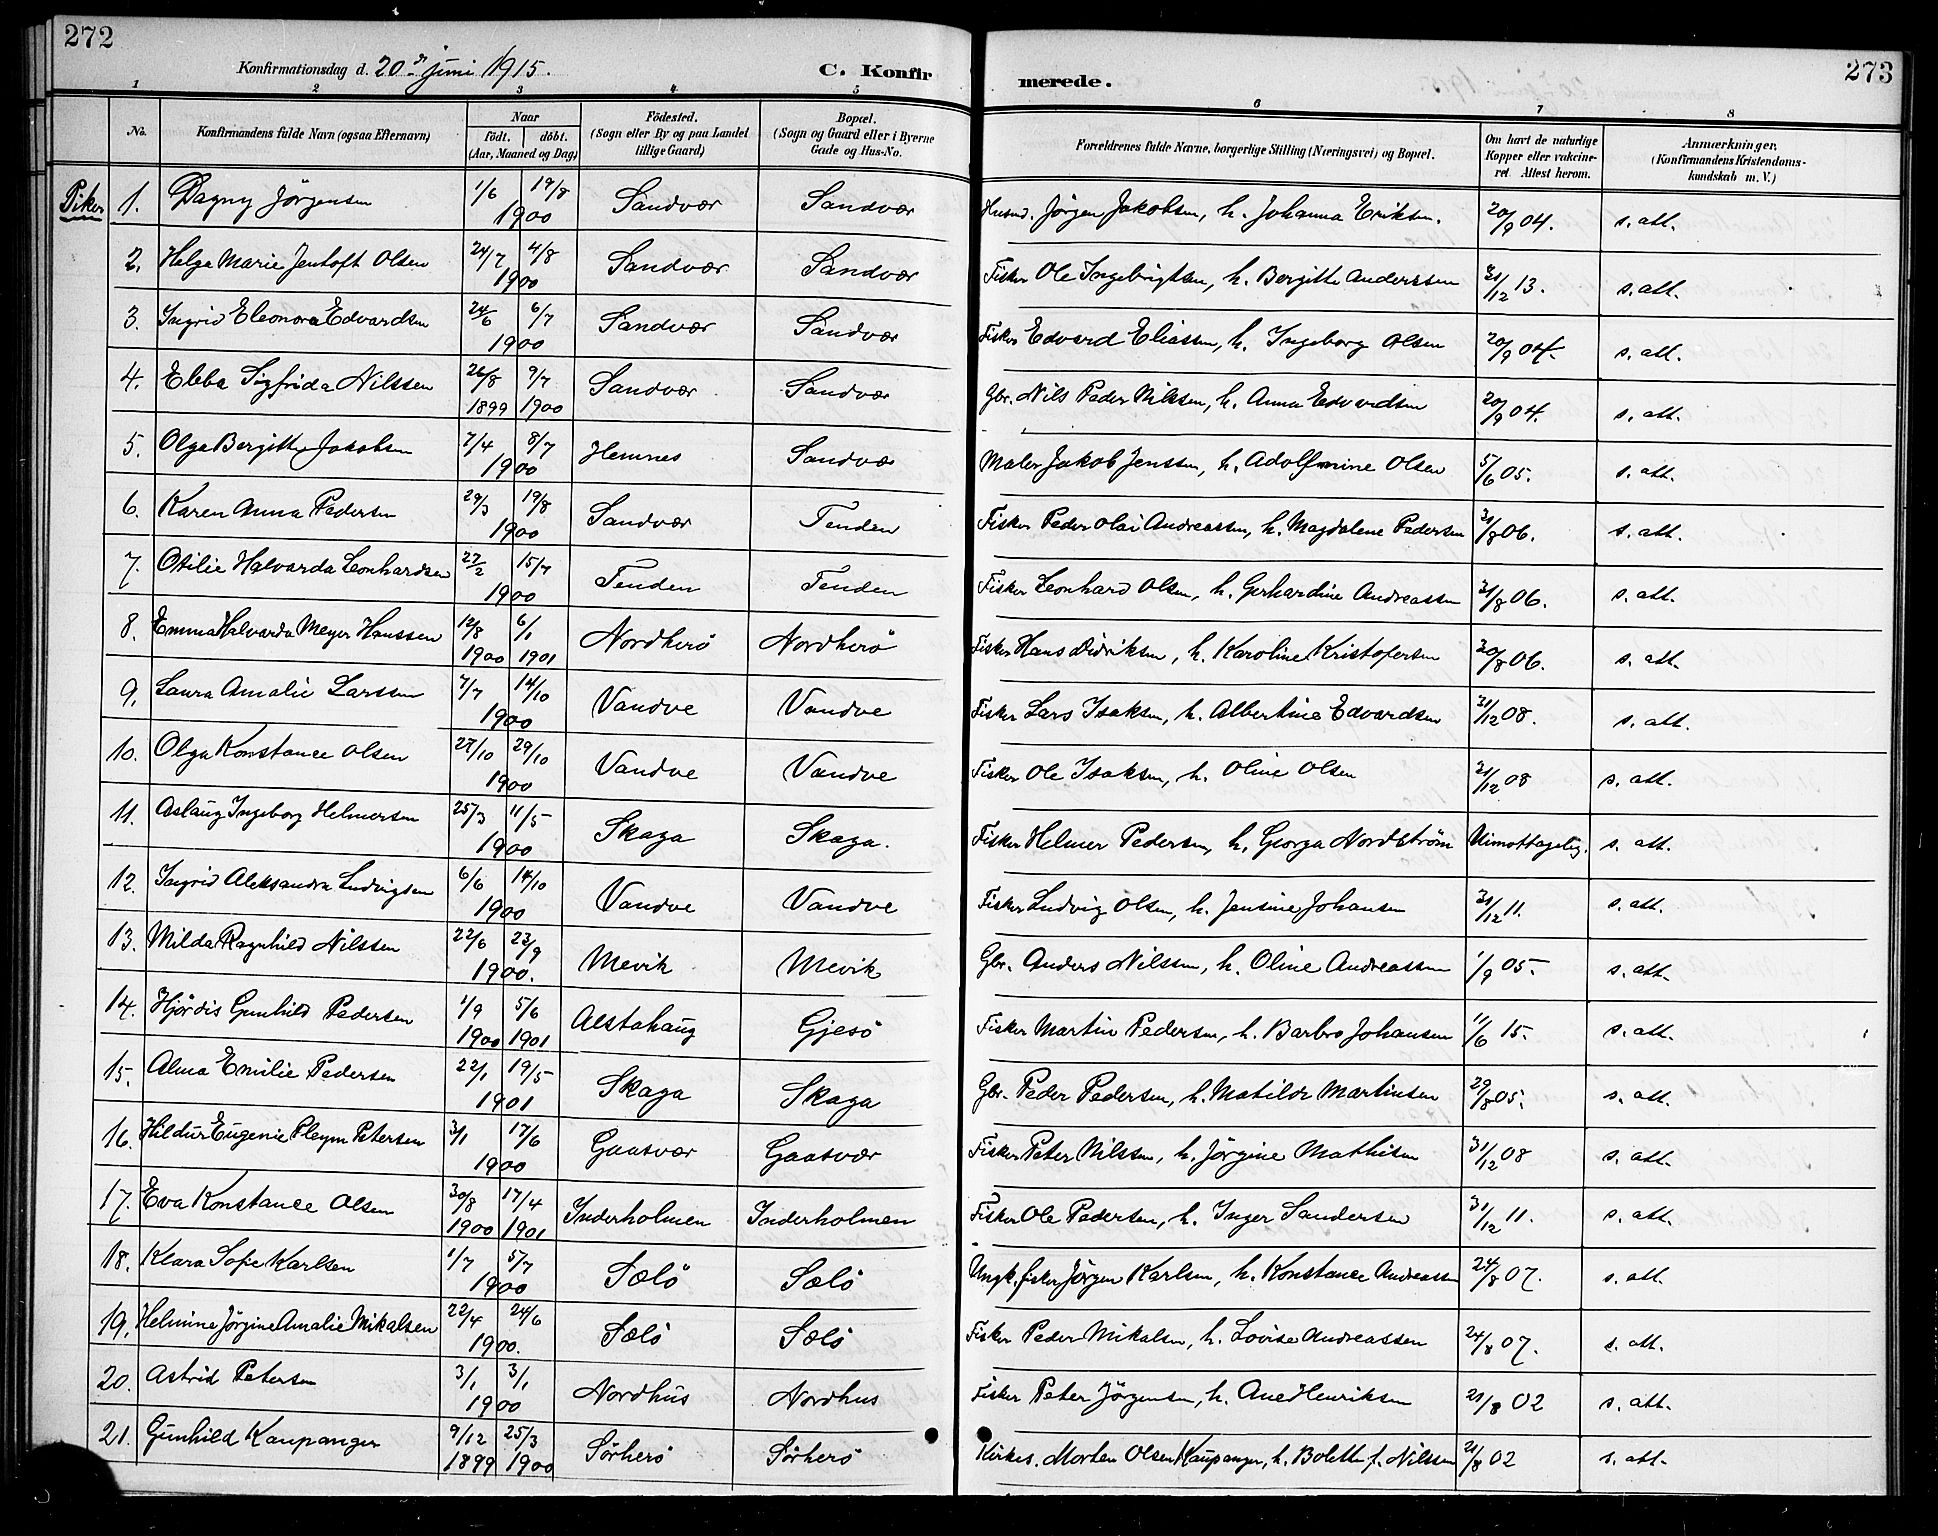 272
Konfirmationsdag d. 20de juni 1915.
C. Konfir
merede.
273
1 2 3 4 5 6 7 8
No.
Konfirmandens fulde Navn (ogsaa Efternavn)
Naar
födt. döbt.
(Aar, Maaned og Dag)
Födested.
(Sogn eller By og paa Landet
tillige Gaard)
Bopæl.
(Sogn og Gaard eller i Byerne
Gade og Hus-No.
Forældrenes fulde Navne, borgerlige Stilling (Næringsvei) og Bopæl.
Om havt de naturlige
Kopper eller vakcine-
ret. Attest herom.
Anmærkninger.
(Konfirmandens Kristendoms-
kundskab m. V.)
Piker
1. Dagny Jörgensen 1/6 19/8 1900 Sandvær Sandvær Husmd. Jörgen Jakobsen, h. Johanna Eriksen. 20/9 04. s. att.
2. Helga Marie Jentoft Olsen 24/7 4/8 1900 Sandvær Sandvær Fisker Ole Ingebrigtsen, h. Bergitte Anderssen 31/12 13. s. att.
3. Ingrid Eleonora Edvardsen 24/6 6/7 1900 Sandvær Sandvær Fisker Edvard Eliassen, h. Ingeborg Olsen 20/9 04. s. att.
4. Ebba Sigfrida Nilssen 26/8 1899 9/7 1900 Sandvær Sandvær Gbr. Nils Peder Nilssen, h. Anna Edvardsen 20/9 04. s. att.
5. Olga Bergitte Jakobsen 7/4 8/7 1900 Hemnes Sandvær Maler Jakob Jenssen, h. Adolfmine Olsen 5/6 05. s. att.
6. Karen Anna Pedersen 29/3 19/8 1900 Sandvær Tenden Fisker Peder Olai Andreassen, h. Magdalene Pedersen 31/8 06. s. att.
7. Otilie Halvarda Leonhardsen 27/2 15/7 1900 Tenden Tenden Fisker Leonhard Olsen, h. Gerhardine Andreassen 31/8 06. s. att.
8. Emma Halvarda Meyer Hanssen 12/8 1900 6/1 1901 Nordherö Nordherö Fisker Hans Didriksen, h. Karoline Kristofersen 30/8 06. s. att.
9. Laura Amalie Larssen 7/7 14/10 1900 Vandve Vandve Fisker Lars Isaksen, h. Albertine Edvardsen 31/12 08. s. att.
10. Olga Konstance Olsen 27/10 29/10 1900 Vandve Vandve Fisker Ole Isaksen, h. Oline Olsen 31/12 08 s. att.
11. Aslaug Ingeborg Helmersen 25/3 11/5 1900 Skaga Skaga. Fisker Helmer Pedersen, h. Georga Nordström Uimottagelig. s. att.
12. Ingrid Aleksandra Ludvigsen 6/6 14/10 1900 Vandve Vandve Fisker Ludvig Olsen, h. Jensine Johansen 31/12 11. s. att.
13. Milda Ragnhild Nilssen 22/6 23/9 1900. Mevik Mevik Gbr. Anders Nilssen, h. Oline Andreassen 1/9 05. s. att.
14. Hjördis Gunhild Pedersen 1/9 1900 5/6 1901 Alstahaug Gjesö Fisker Martin Pedersen, h. Barbro Johansen 11/6 15. s. att.
15. Alma Emilie Pedersen 22/1 19/5 1901 Skaga Skaga Gbr. Peder Pedersen, h. Matilde Martinsen 29/8 05. s. att.
16. Hildur Eugenie Pleym Petersen 3/1 17/6 1900 Gaasvær Gaasvær Fisker Peter Nilssen, h. Jörgine Mathisen 31/12 08 s. att.
17. Eva Konstance Olsen 30/8 1900 17/4 1901 Inderholmen Inderholmen Fisker Ole Pedersen, h. Inger Sandersen 31/12 11. s. att.
18. Klara Sofie Karlsen 1/7 5/7 1900 Sælö Sælö Ungk. fisker Jörgen Karlsen, h. Konstance Andreassen 24/8 07. s. att.
19. Helmine Jörgine Amalie Mikalsen 22/4 24/6 1900. Sælö Sælö Fisker Peder Mikalsen, h. Lovise Andreassen 24/8 07. s. att.
20. Astrid Petersen 3/1 3/1 1900 Nordhus Nordhus Fisker Peter Jörgensen, h. Ane Henriksen 21/8 02 s. att.
21. Gunhild Kaupanger 9/12 1899 25/3 1900 Sörherö Sörherö Kirkes. Morten Olsen Kaupanger, h. Bolette f. Nilssen 21/8 02 s. att.